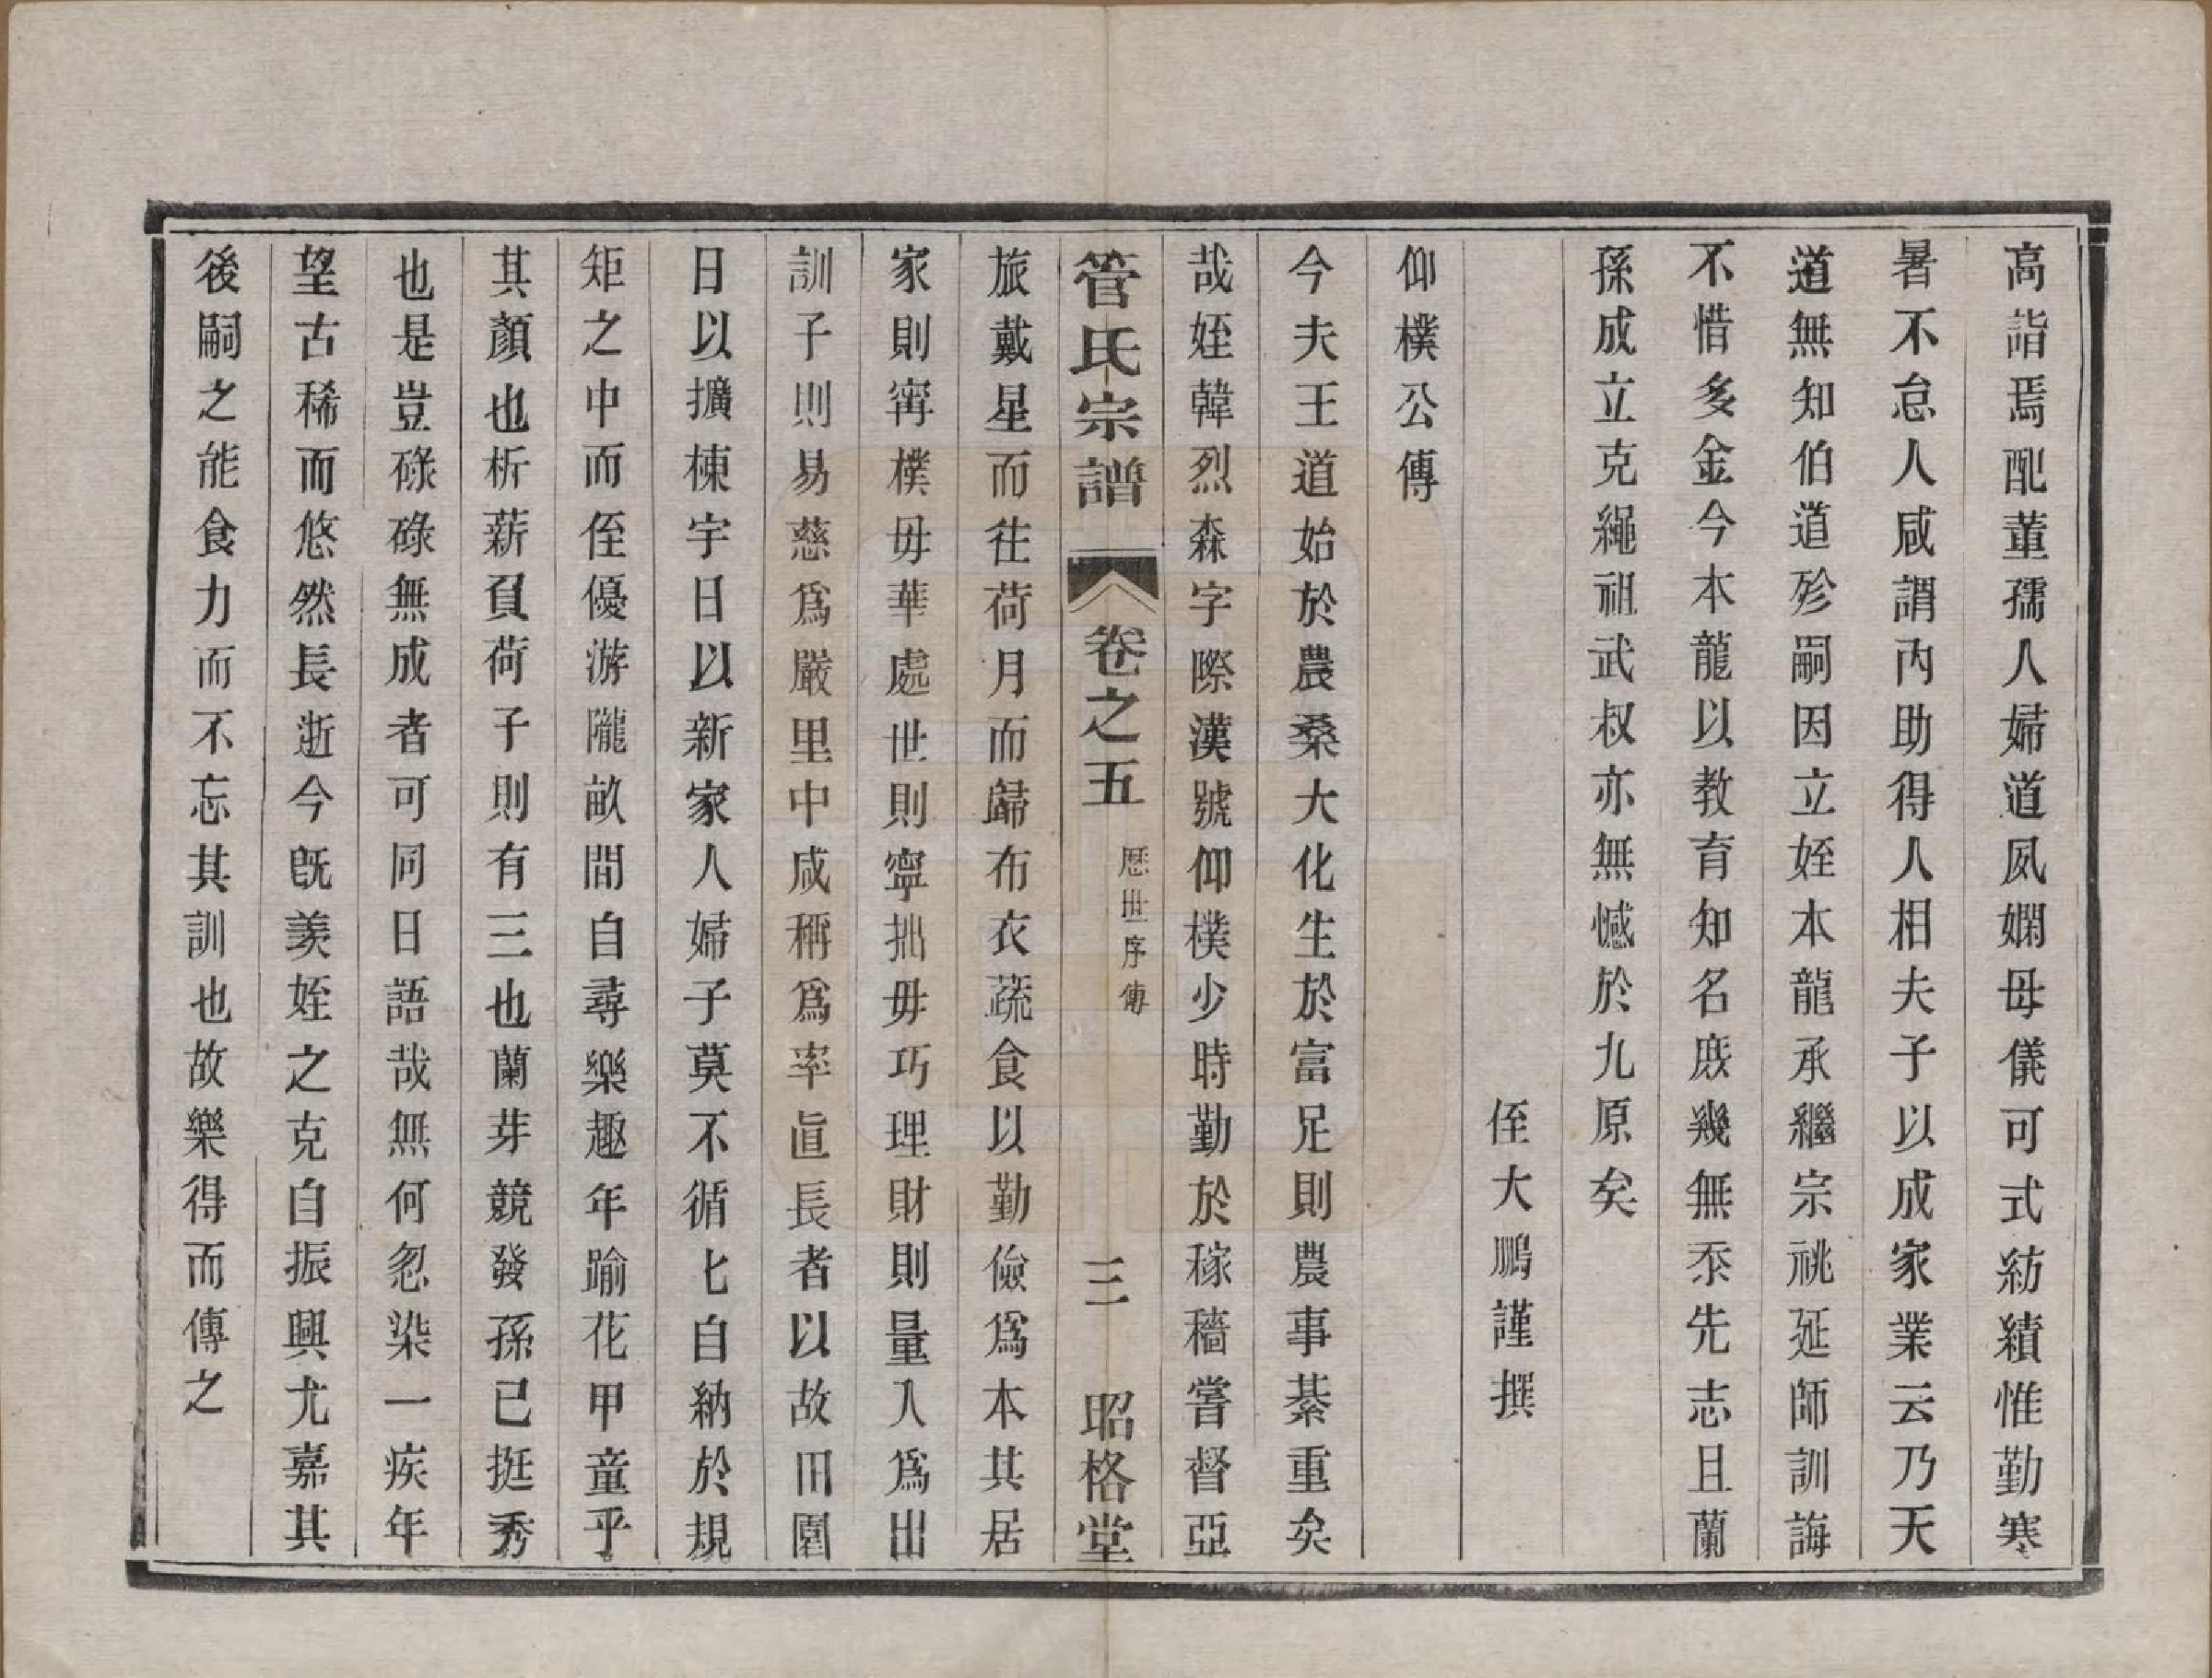 高詣焉配董孺人婦道夙嫻母儀可式紡績惟勤寒
暑不怠人咸謂內助得人相夫子以成家業云乃天
道無知伯道殄嗣因立姪本龍承繼宗祧延師訓誨
不惜多金今本龍以教育知名庶幾無忝先志且蘭
孫成立克繩祖武叔亦無憾於九原矣
侄大鵬謹撰
仰樸公傳
今夫王道始於農桑大化生於富足則農事綦重矣
哉姪韓烈森字際漢號仰樸少時勤於稼穡嘗督亞
管氏宗譜 卷之五 歷世序傳 三 昭格堂
旅戴星而往荷月而歸布衣蔬食以勤儉爲本其居
家則甯樸毋華處世則寧拙毋巧理財則量入爲出
訓子則易慈爲嚴里中咸稱爲率眞長者以故田園
日以擴棟宇日以新家人婦子莫不循匕自納於規
矩之中而侄優游隴畝間自尋樂趣年踰花甲童乎
其顏也析薪負荷子則有三也蘭芽競發孫已挺秀
也是豈碌碌無成者可同日語哉無何忽染一疾年
望古稀而悠然長逝今旣羨姪之克自振興尤嘉其
後嗣之能食力而不忘其訓也故樂得而傳之